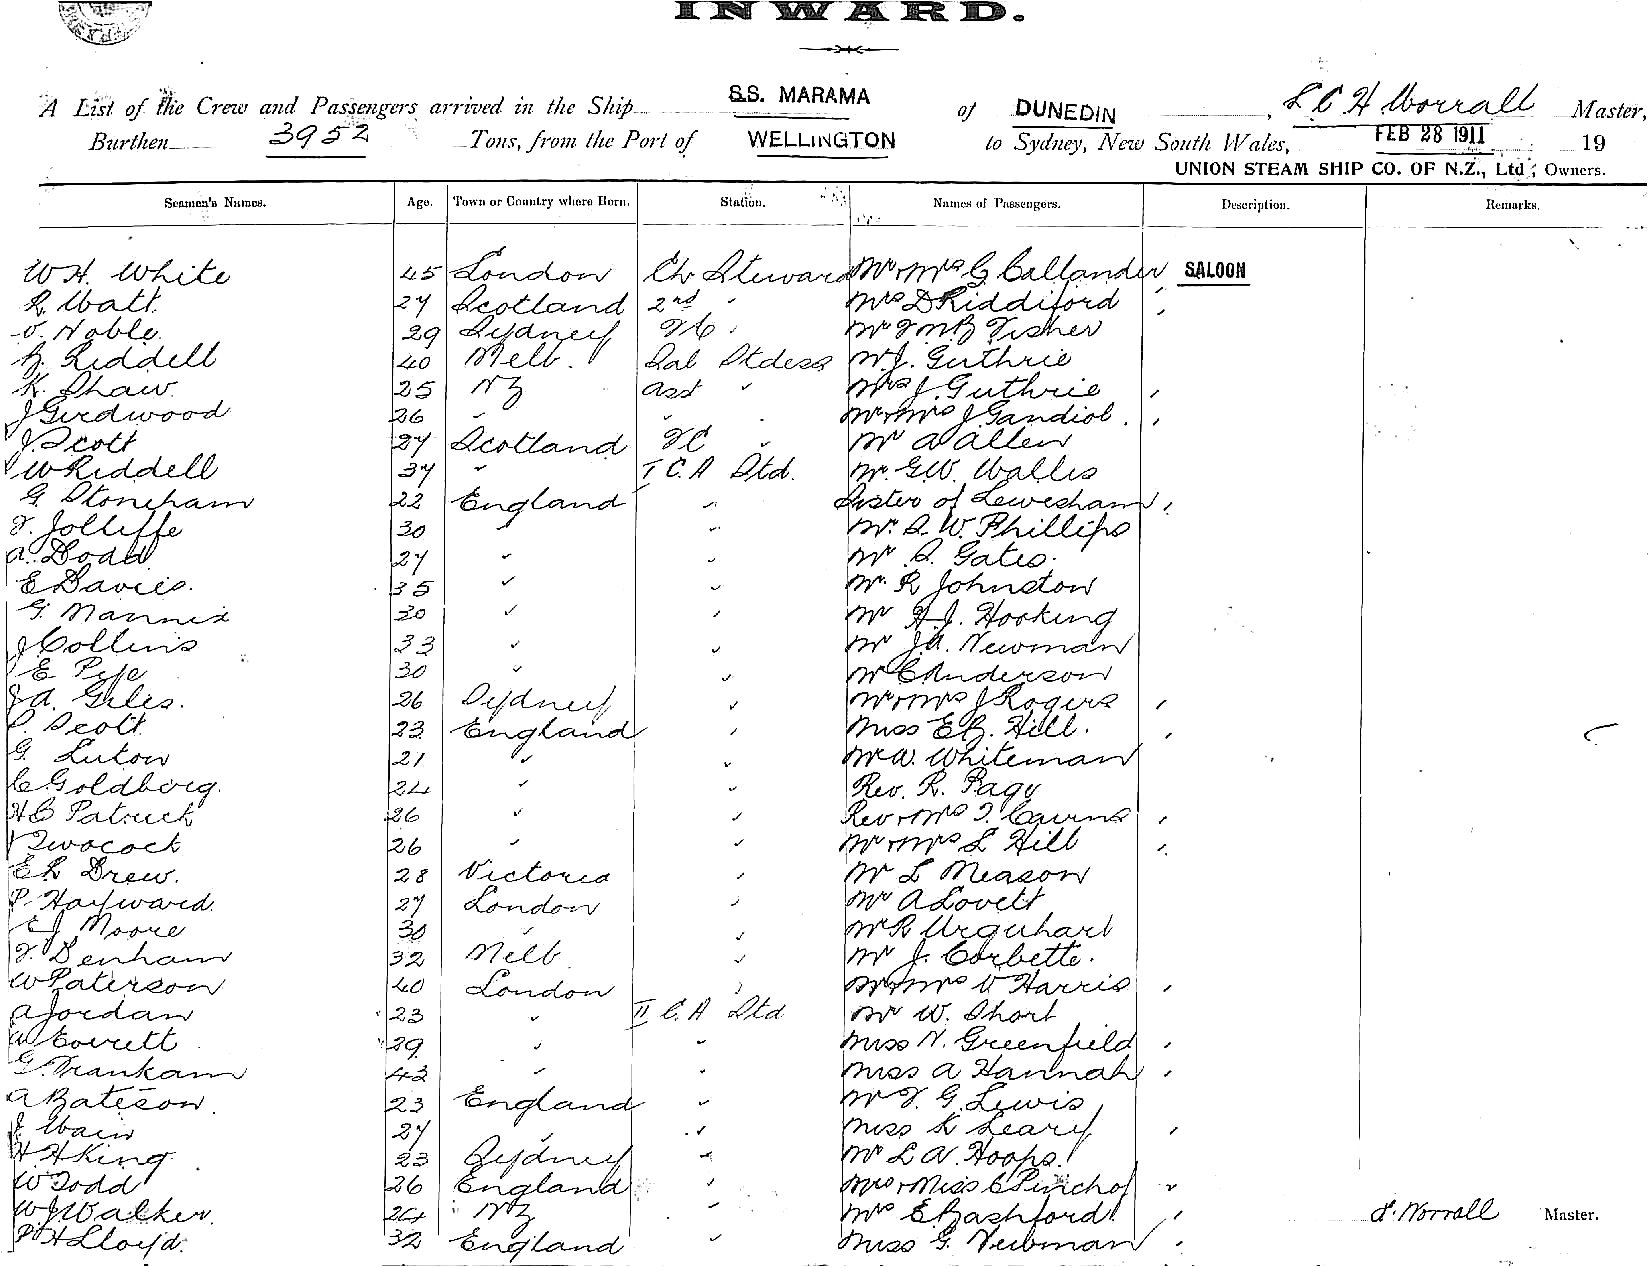 INWARD.
A List of the Crew and Passengers arrived in the Ship S.S. MARAMA of DUNEDIN, H Worrall Master,
Burthen 3952 Tons, from the Port of WELLINGTON to Sydney, New South Wales, FEB 28 1911 19
UNION STEAM SHIP CO. OF N.Z., Ltd, Owners.
Seamen's Names. Age. Town or Country where Born. Station. Names of Passengers. Description. Remarks.
W H. White 45 London Ch Steward Mr & Mrs G Callander SALOON
R Watt. 27 Scotland 2nd " Mrs D Riddiford
Noble. 29 Sydney Mr Fisher
Riddell 40 Melb. Sal Stdess W. J. Guthrie
K Shaw. 25 NZ Asst " Mrs J Guthrie
J Girdwood 26 " " Mr & Mrs J Gandiol.
J Scott 27 Scotland " Mr A Allen
W Riddell 37 " I C. A Std. Mr. G.W. Wallis
G Stoneham 22 England " Sister of Lewesham
F. Jolliffe 30 " " Mr. A. W. Phillips
A. Dodd 27 " " Mr A. Gates.
E Davies. 35 " " Mr. R Johnston
G. Mannix 30 " " Mr H. J. Hosking
J Collins 33 " " Mr J A. Newman
E. Pye 30 " " Mr C Anderson
J A. Giles. 26 Sydney " Mr & Mrs J Rogers
P. Scott 23 England " Miss E B. Hill.
G. Luton 21 " " Mr W. Whiteman
C Goldberg. 24 " " Rev. R. Page
H C Patrick 26 " " Rev & Mrs J. Cairns
26 " " Mr & Mrs L Hill
E L Drew. 28 Victoria " Mr L Meason
P. Hayward. 27 London " Mr A Lovett
C J Moore 30 " " Mr R Urquhart
F. Denham 32 Melb. " Mr J. Corbette.
W Paterson 40 London " Mr & Mrs V Harris
A Jordan 23 " II C. A Std Mr W. Short
Everett 29 " " Miss N. Greenfield
G. Frankam 43 " " Miss A Hannah
A Bateson. 23 England " Mr F. G. Lewis
Wain 27 " " Miss K Leary
H H King 23 Sydney " Mr L A. Hoops.
W Todd 26 England " Mrs & Miss C
W J Walker. 24 NZ " Mrs E Bashford. J. Worrall Master.
P H Lloyd. 32 England " Miss G. Newman